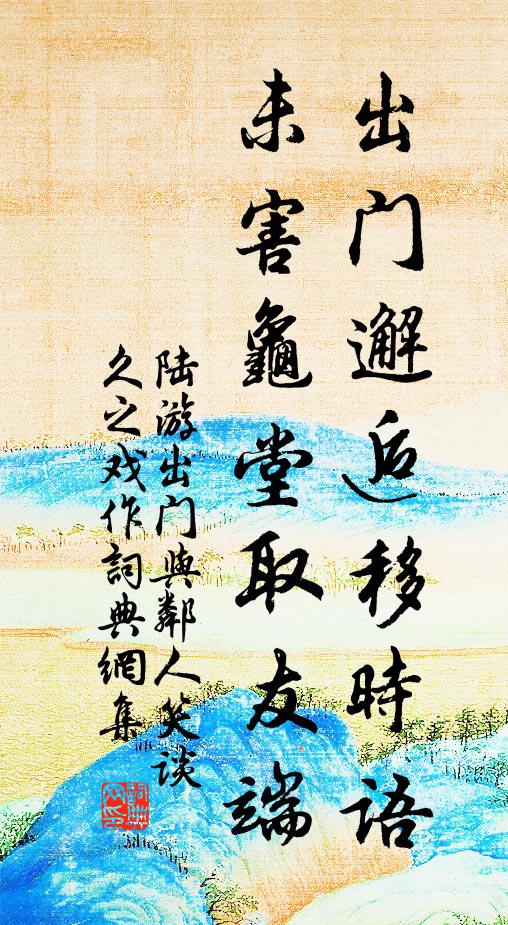 出门邂逅移時語
未害龜堂取友端
陆游出门與鄰人笑谈
久之戏作詞典網集